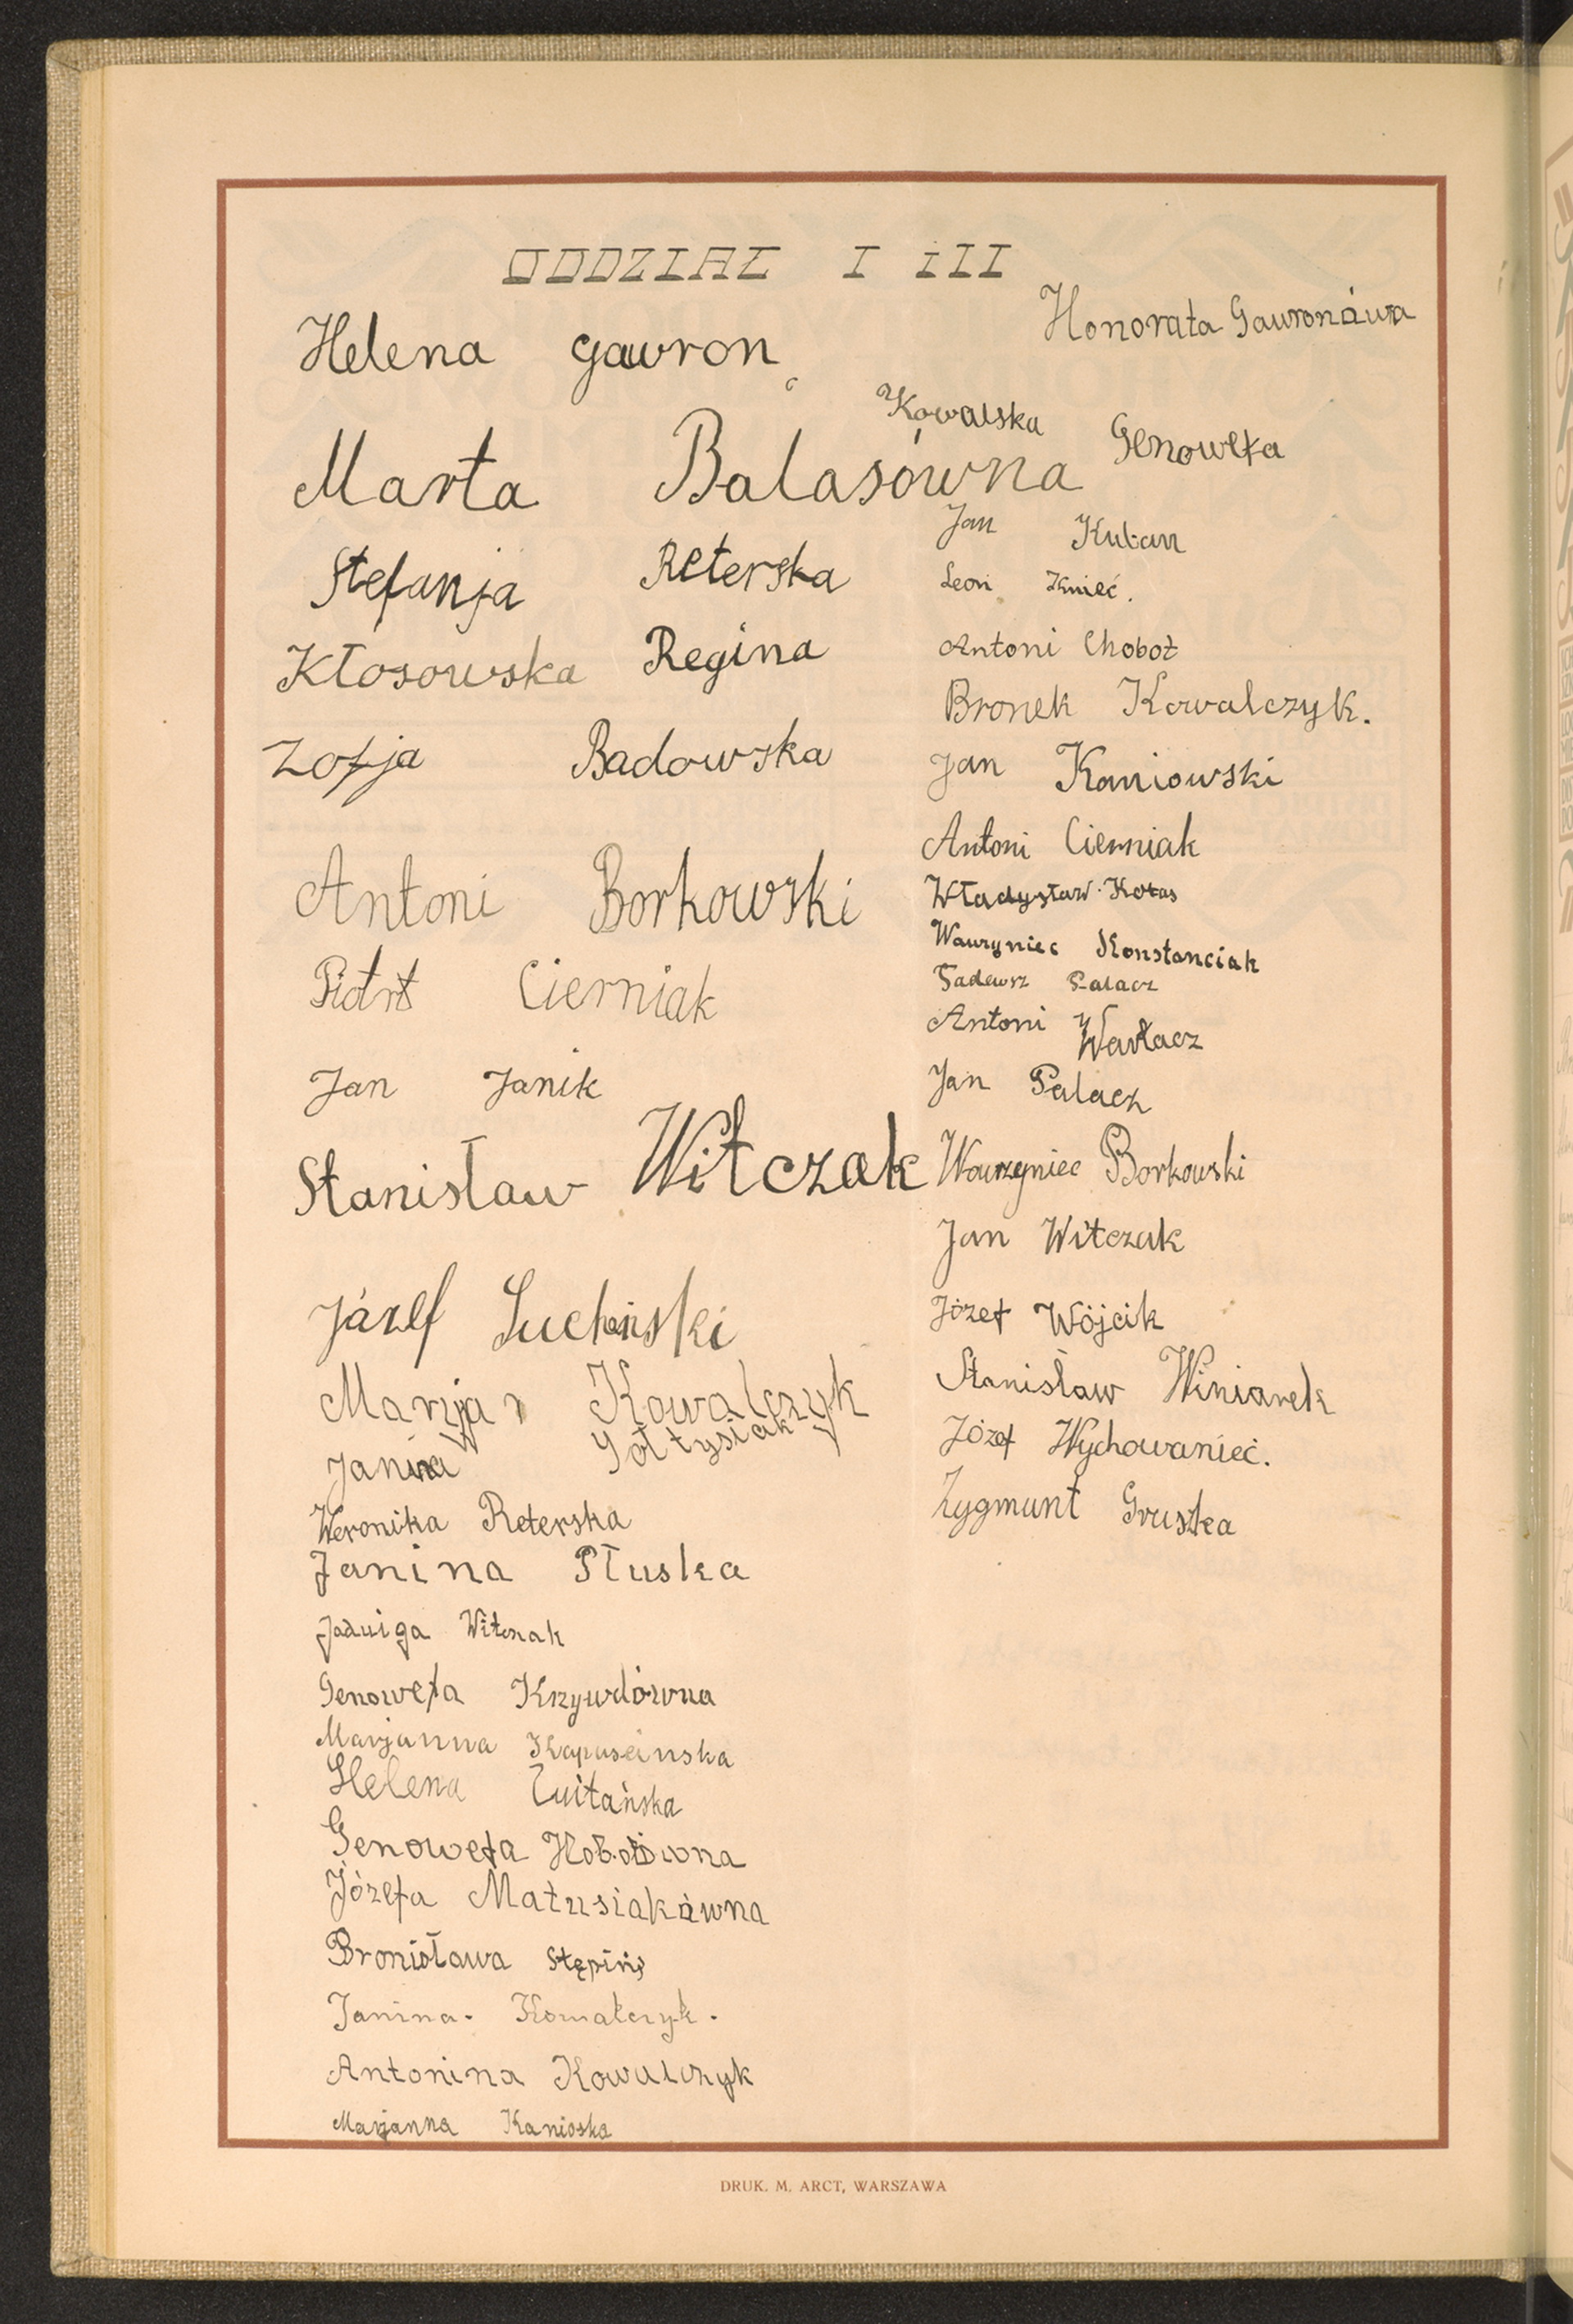 ODDZIAŁ I i II
Helena Gawron
Marta Balasówna
Stefanja Reterska
Kłosowska Regina
Zofja Badowska
Antoni Borkowski
Piotr Cierniak
Jan Janik
Stanisław Witczak
Józef Suchński
Marja Kowalczyk
Janina Sołtysiak
Weronika Reterska
Janina Płuska
Jadwiga Witczak
Genowefa Krzywdówna
Marjanna Kapuscinska
Helena
Genowefa
Józefa Matusiakówna
Bronisława Stępiń
Janina. Kowalczyk.
Antonina Kowalczyk
Marjanna Kanioska
Honorata Gawronówna
Kowalska Genowefa
Jan Kuban
Leon Kmieć.
Antoni Chobot
Bronek Kowalczyk.
Jan Kaniowski
Antoni Cierniak
Władysław Kotas
Wawrzyniec Konstanciak
Tadeusz Palacz
Antoni Warłacz
Jan Palacz
Wawrzyniec Borkowski
Jan Witczak
Józef Wójcik
Stanisław Winiarek
Józef Wychowanieć.
Zygmunt Gruszka
DRUK. M. ARCT, WARSZAWA